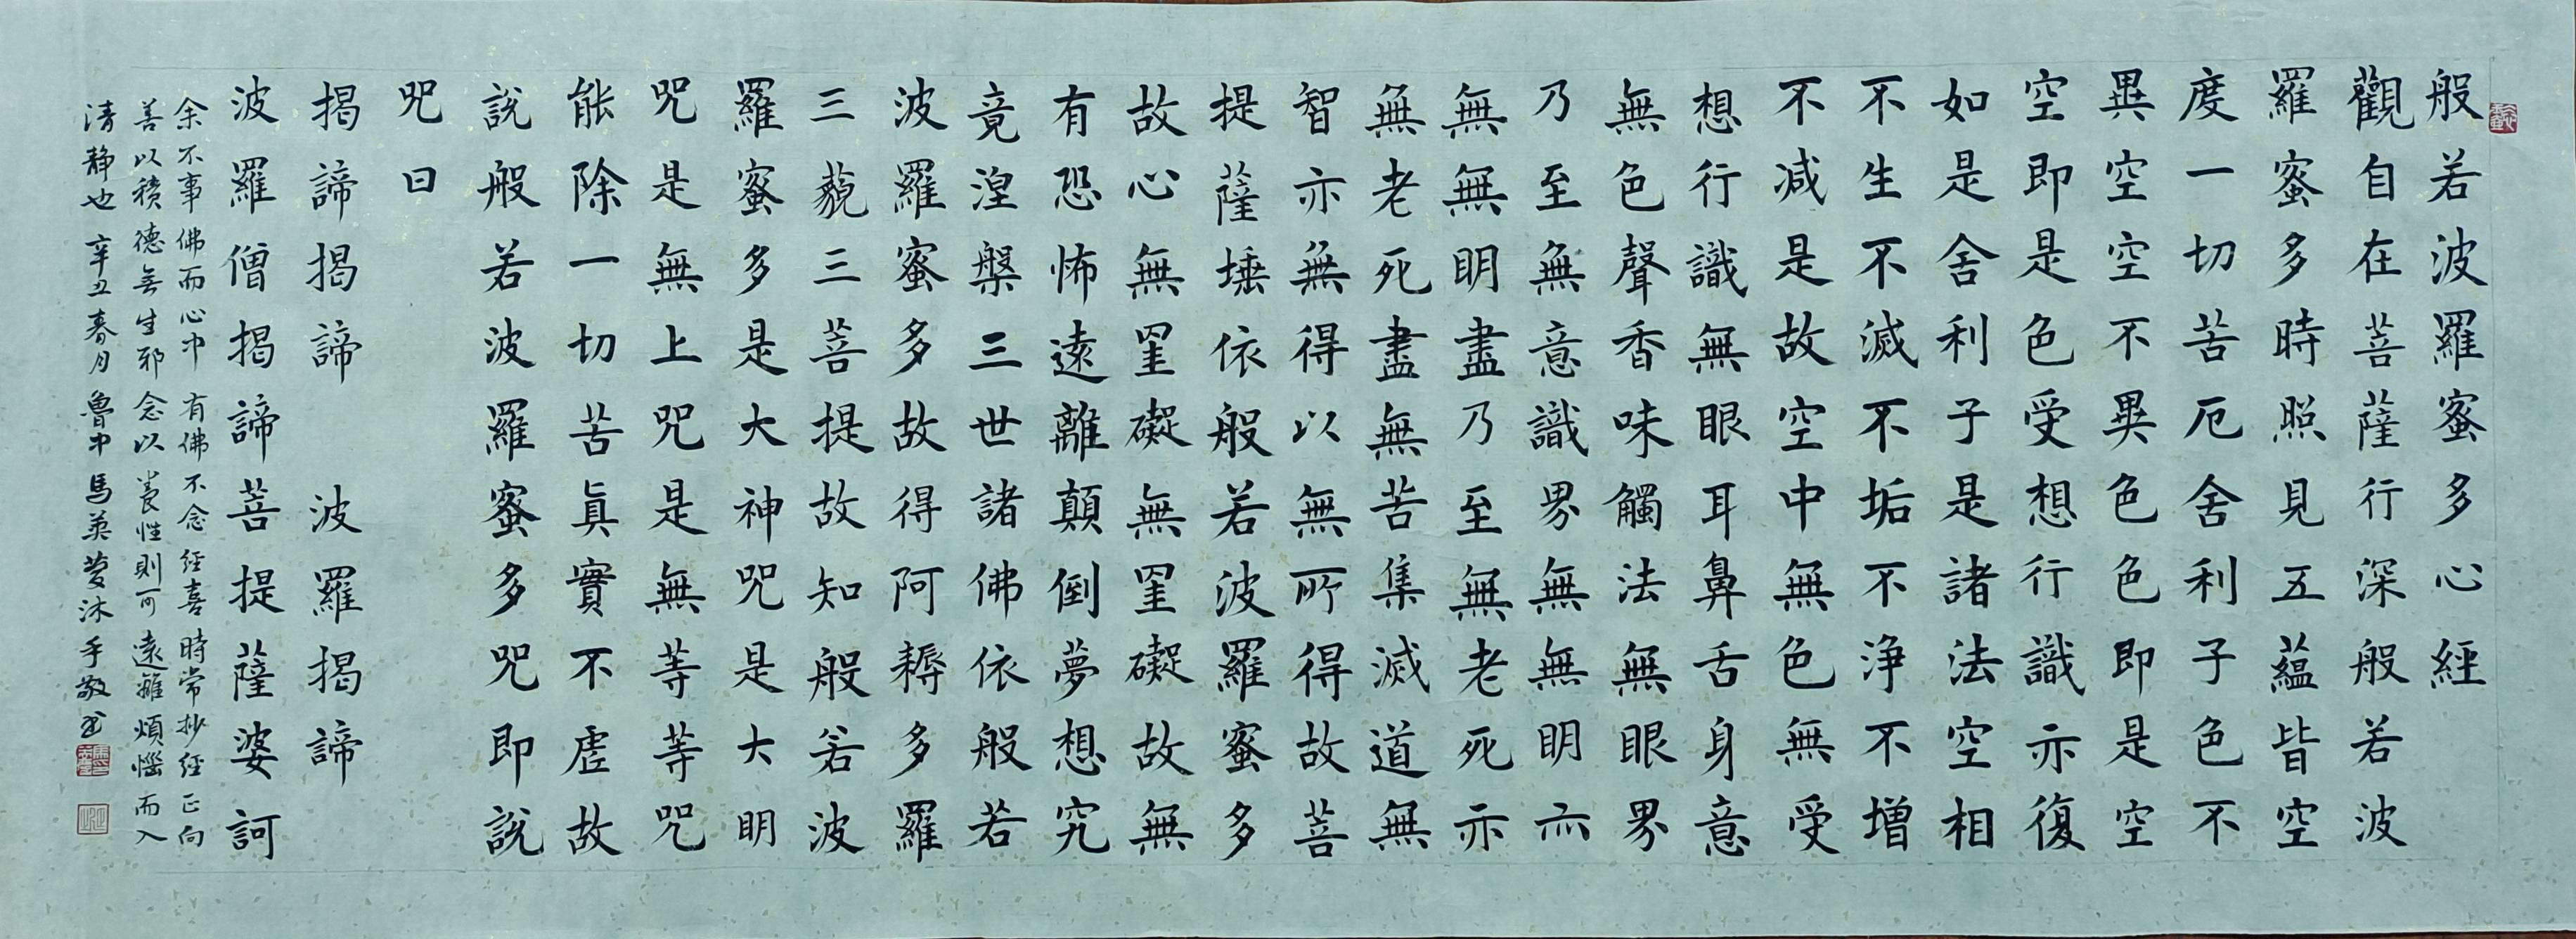 般若波羅蜜多心經
觀自在菩薩行深般若波
羅蜜多時照見五蘊皆空
度一切苦厄舍利子色不
異空空不異色色即是空
空即是色受想行識亦復
如是舍利子是諸法空相
不生不滅不垢不浄不增
不減是故空中無色無受
想行識無眼耳鼻舌身意
無色聲香味觸法無眼界
乃至無意識界無無明亦
無無明盡乃至無老死亦
無老死盡無苦集滅道無
智亦無得以無所得故菩
提薩埵依般若波羅蜜多
故心無罣礙無罣礙故無
有恐怖遠離顛倒夢想究
竟涅槃三世諸佛依般若
波羅蜜多故得阿耨多羅
三藐三菩提故知般若波
羅蜜多是大神咒是大明
咒是無上咒是無等等咒
能除一切苦真實不虛故
說般若波羅蜜多咒即說
咒曰
揭諦揭諦 波羅揭諦
波羅僧揭諦菩提薩婆訶
余不事佛而心中有佛不念經喜時常抄經正向
善以積德無生邪念以養性則可遠離煩惱而入
清靜也 辛丑春月魯中馬英夢沐手敬書